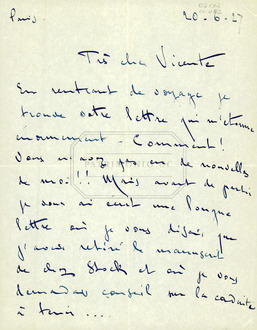 Paris
20-6-27
Très cher Vicente
En rentrant de voyage je
trouve votre lettre qui m'étonne
énormément - Comment!
Vous n'avez pas eu de nouvelles
de moi!! Mais avant de partir
je vous ai écrit une longue
lettre où je vous disais que
j'avais retiré le manuscrit
de chez Stock et où je vous
demandais conseil sur la conduite
à tenir ....